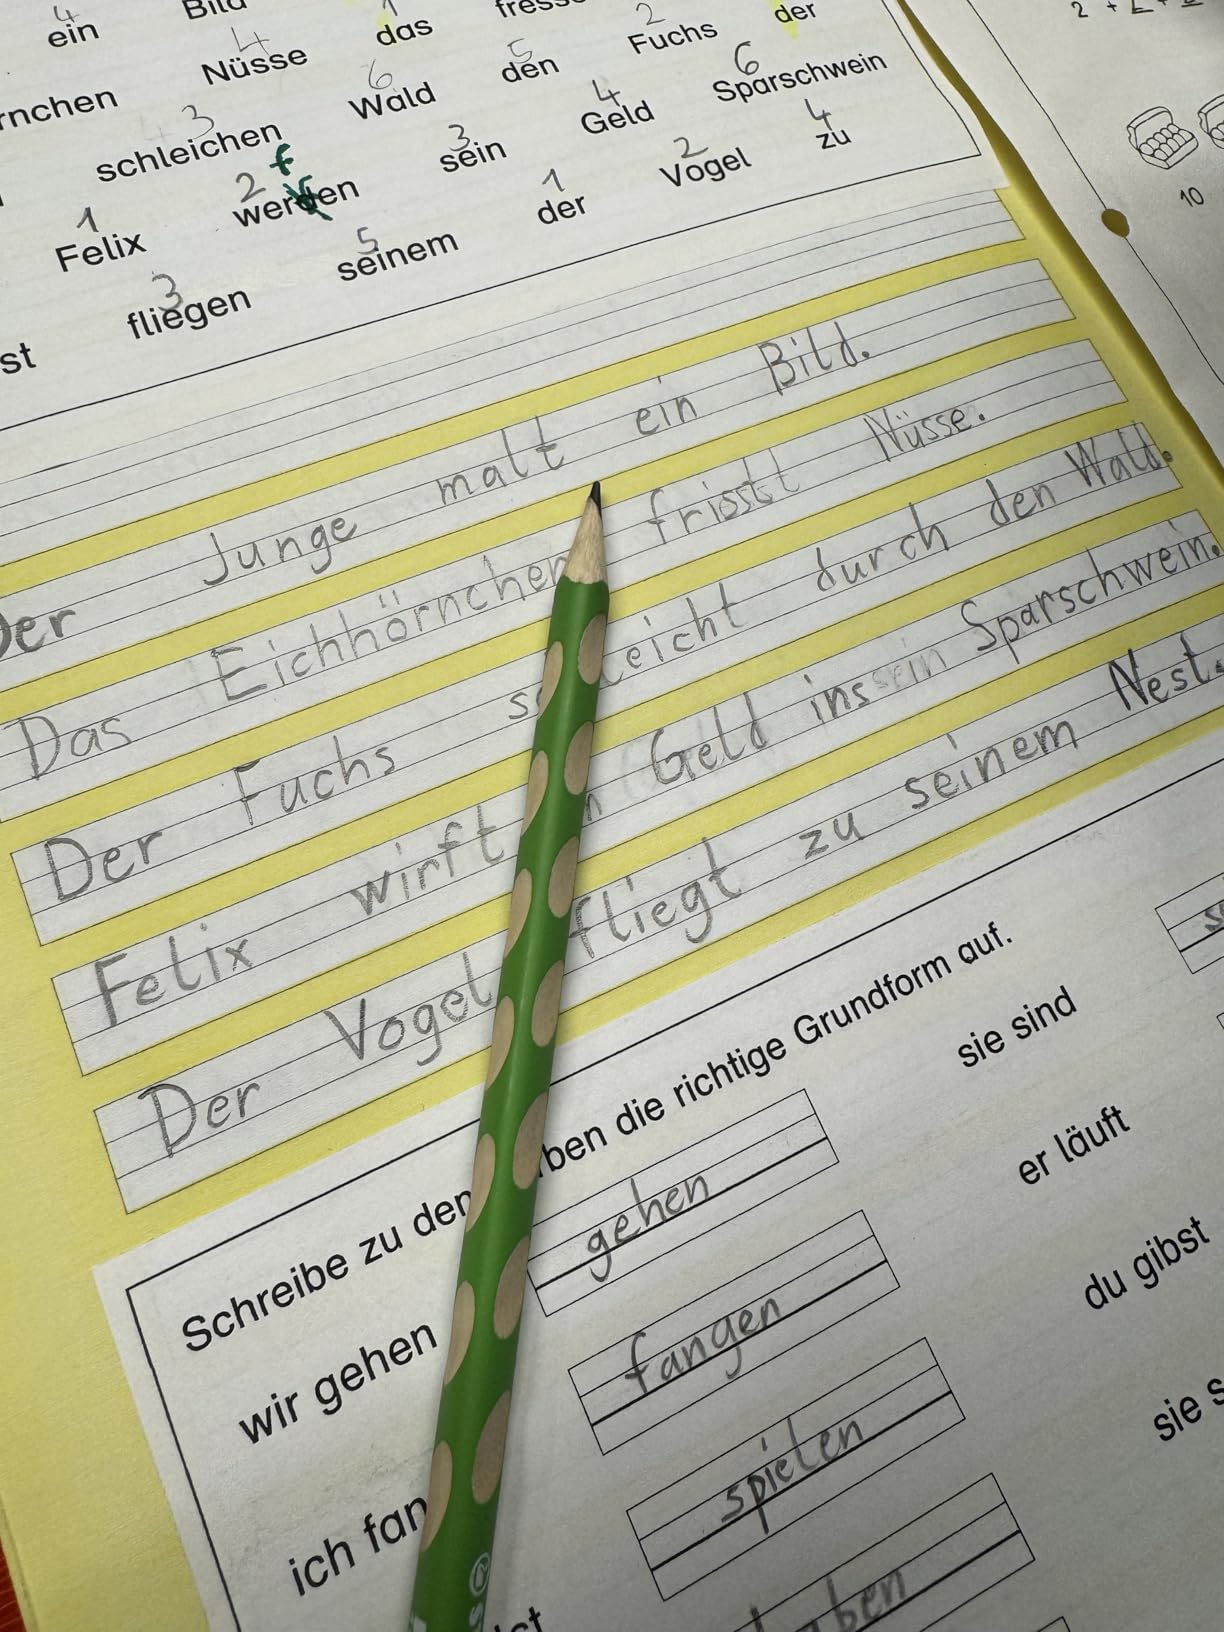 4 1 2
ein Bild das fresse der
4 5 6
Nüsse den Fuchs
rnchen 6 4 Sparschwein
3 Wald Geld
schleichen 3 4
2 f sein 2 zu
1 werden 1 Vogel
Felix 5 der
3 seinem
fliegen
st
Der Junge malt ein Bild.
Das Eichhörnchen frisst Nüsse.
Der Fuchs leicht durch den Wald.
Felix wirft Geld ins Sparschwein.
Der Vogel fliegt zu seinem Nest.
Schreibe zu den ben die richtige Grundform auf.
wir gehen gehen sie sind
ich fan fangen er läuft
spielen du gibst
aben sie s
10